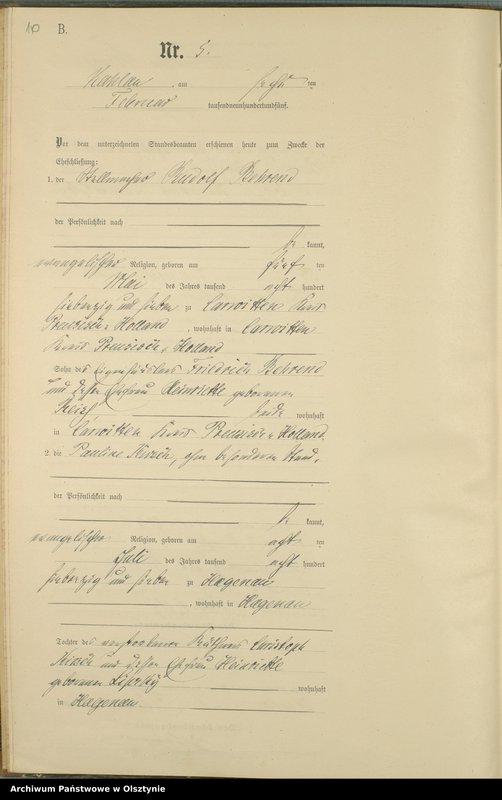 10 B.
Nr. 5.
am sechsten
Februar tausendneunhundertundfünf.
Vor dem unterzeichneten Standesbeamten erschienen heute zum Zwecke der
Eheschließung:
1. der Stellmacher Rudolf Behrend
der Persönlichkeit nach
be kannt,
evangelischer Religion, geboren am fünf ten
Mai des Jahres tausend acht hundert
siebenzig und sieben zu Carwitten Kreis
Preussisch Holland, wohnhaft in Carwitten
Kreis Preussisch Holland
Sohn des Eigenkäthners Friedrich Behrend
und dessen Ehefrau Heinriette geborenen
beide wohnhaft
in Carwitten Kreis Preussisch Holland.
2. die Pauline Hirsch, ohne besonderen Stand,
der Persönlichkeit nach
be kannt,
evangelischer Religion, geboren am acht ten
Juli des Jahres tausend acht hundert
siebenzig und sieben zu Hagenau
, wohnhaft in Hagenau
Tochter des verstorbenen Käthners Christoph
Hirsch und dessen Ehefrau Heinriette
geborenen wohnhaft
in Hagenau.
Archiwum Państwowe w Olsztynie